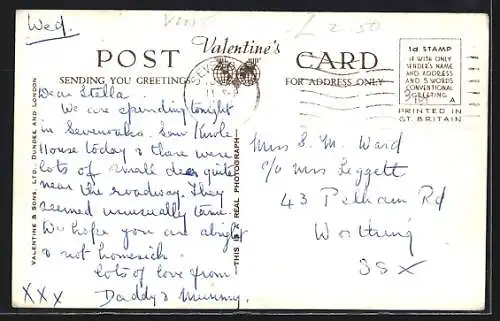 Wed.
£ 2-50
POST Valentine's CARD
SENDING YOU GREETINGS
FOR ADDRESS ONLY
1d STAMP
IF WITH ONLY
SENDER'S NAME
AND ADDRESS
AND 5 WORDS
CONVENTIONAL
GREETING
A
PRINTED IN
GT. BRITAIN
VALENTINE & SONS, LTD. DUNDEE AND LONDON
THIS IS A REAL PHOTOGRAPH
Dear Stella.
We are spending tonight
in Sevenoaks. Saw Knole
House today & there were
lots of small deer quite
near the roadway. They
seemed unusually tame.
We hope you are alright
& not homesick.
Lots of love from
XXX Daddy & Mummy.
Miss S. M. Ward
c/o Mrs Leggett
43 Pelham Rd
Worthing
SSX